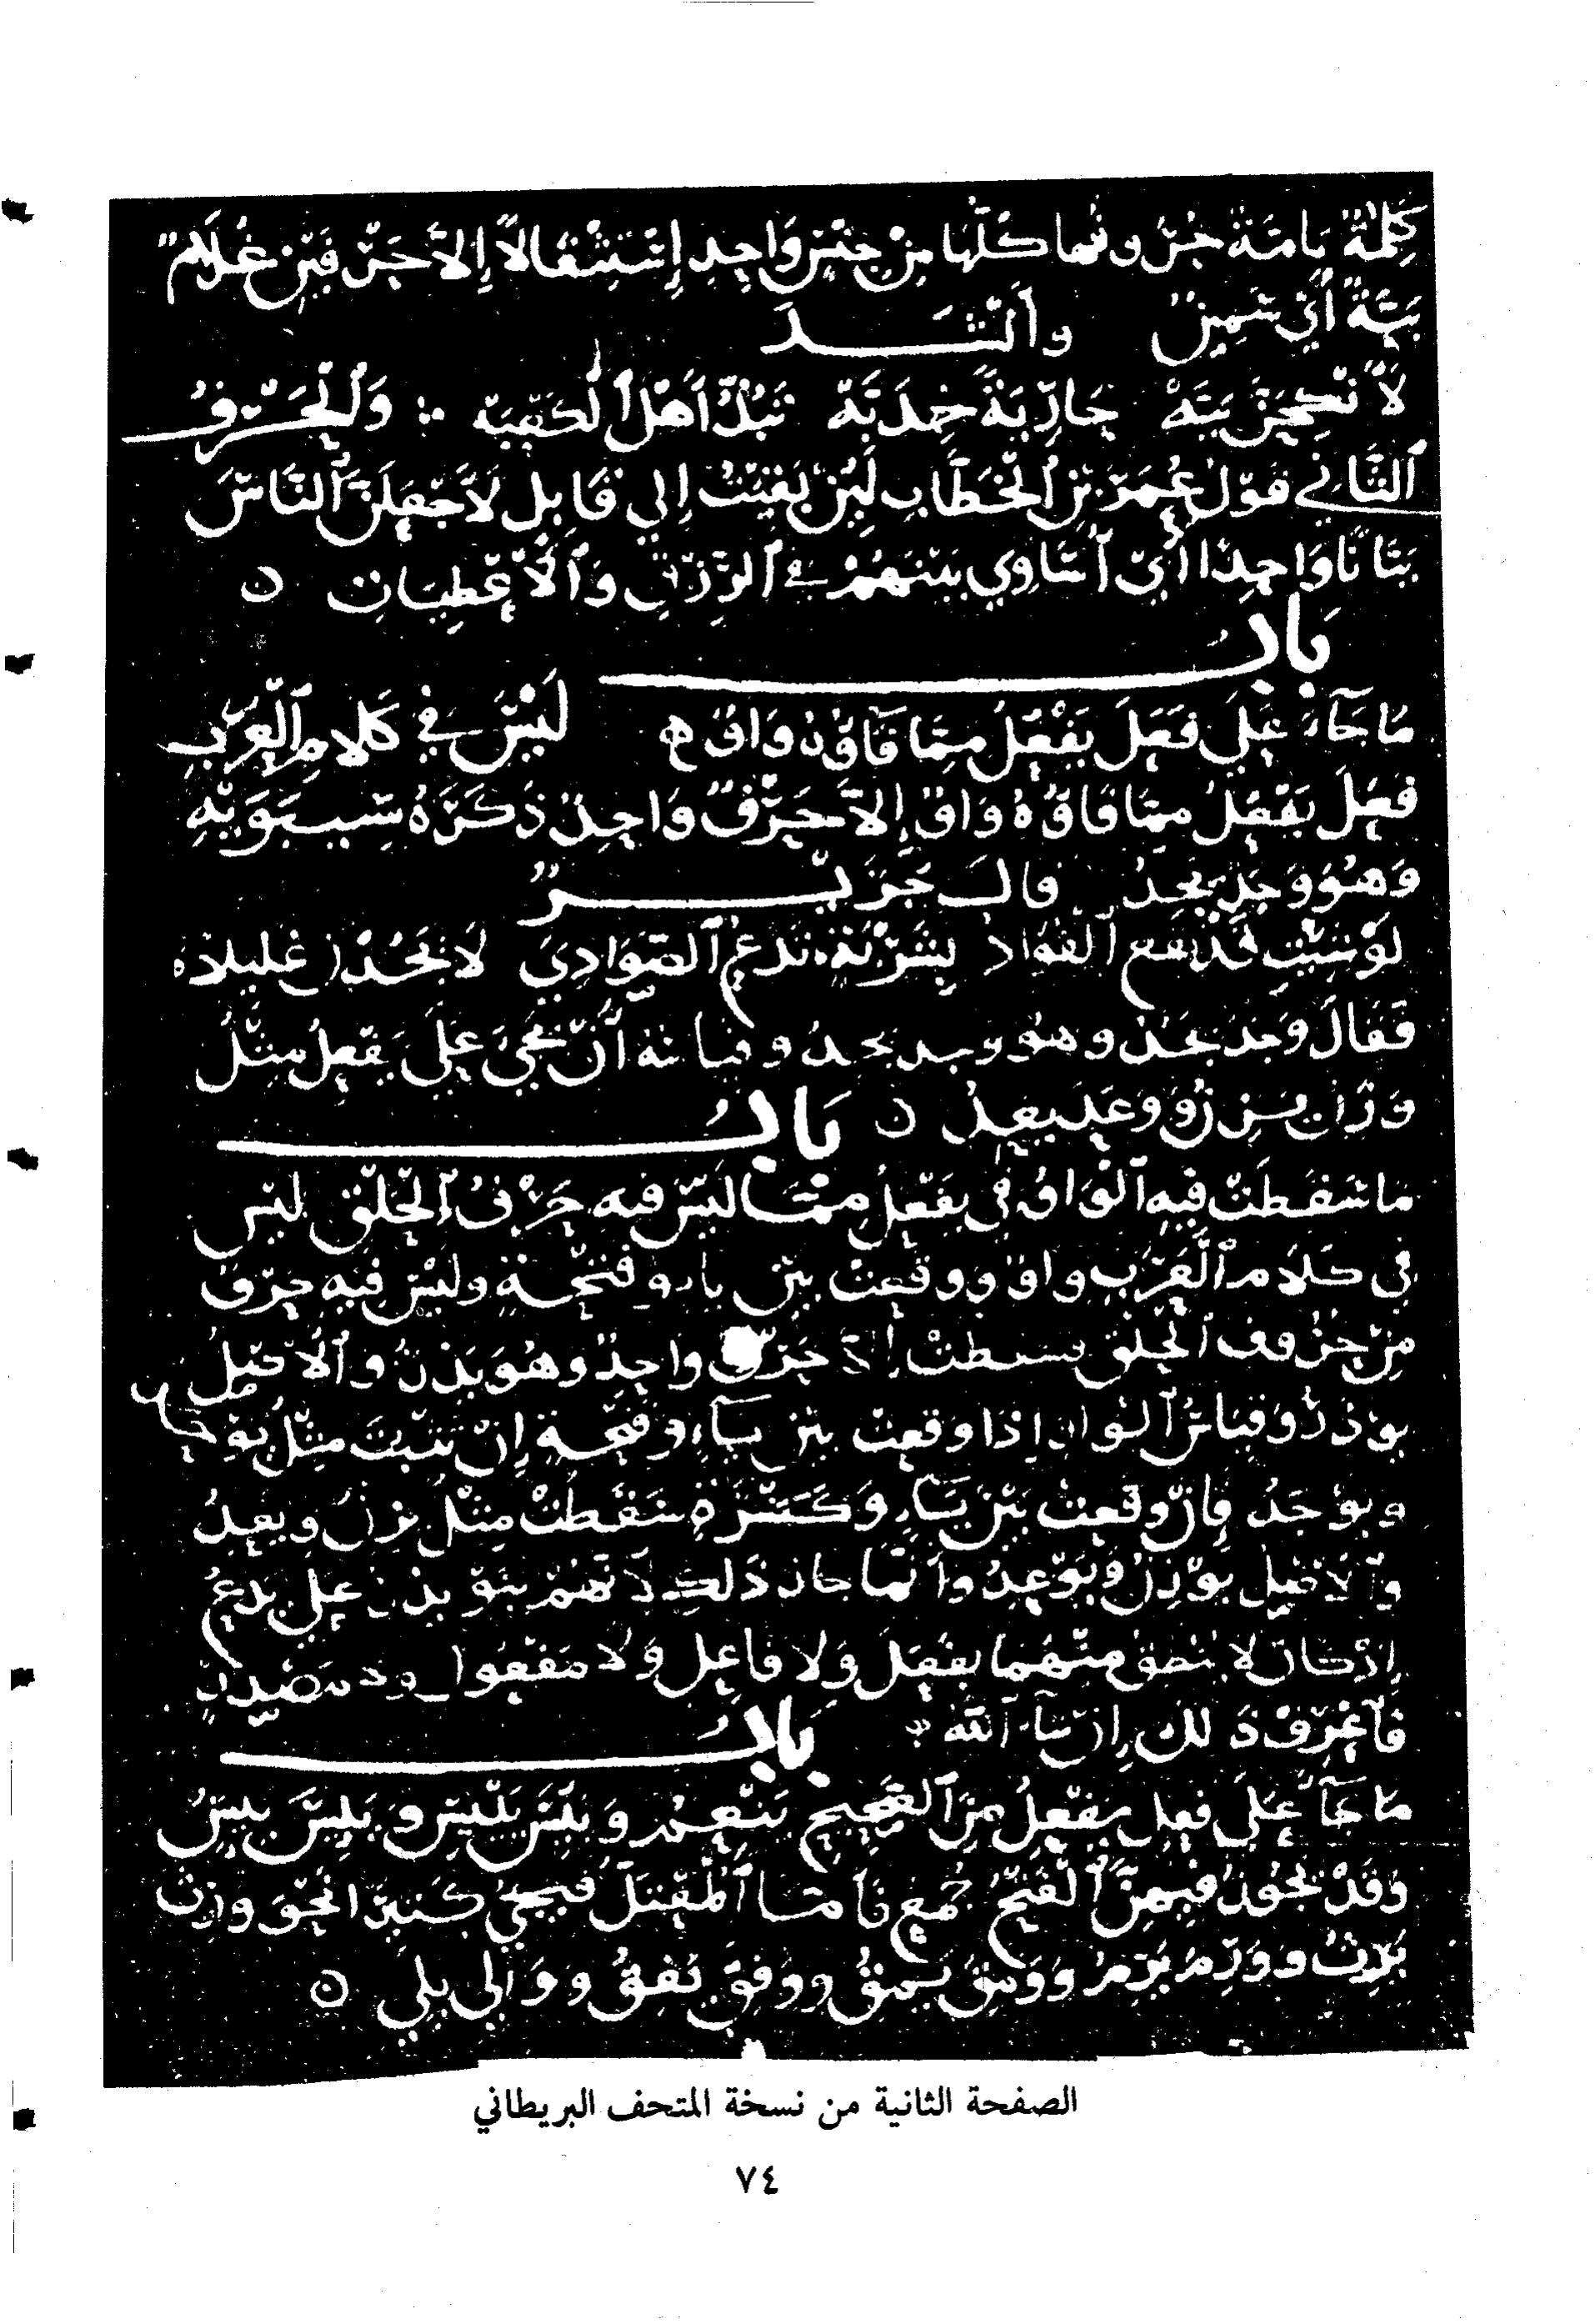 كَلِمَةٌ تامَّةٌ حُرُوفُها كُلُّها مِنْ جِنْسٍ وَاحِدٍ إِسْتِثْقَالًا إِلَّا حَرْفَيْنِ غُلَامٌ
بَبَّةٌ أَيْ سَمِينٌ وأَنْشَدَ
لَأُنْكِحَنَّ بَبَّهْ جَارِيَةً خِدَبَّهْ تَبُذُّ أَهْلَ الْكَعْبَهْ وَالْحَرْفُ
الثَّانِي قَوْلُ عُمَرَ بْنِ الْخَطَّابِ لَئِنْ بَقِيتُ إِلى قَابِلٍ لَأَجْعَلَنَّ النَّاسَ
بَبَّانًا وَاحِدًا أَيْ أُسَاوِي بَيْنَهُمْ في الرِّزْقِ وَالْأُعْطِيَاتِ ن
بَابُ
مَا جَاءَ عَلَى فَعَلَ يَفْعُلُ مِمَّا فَاؤُهُ وَاوٌ ه لَيْسَ في كَلَامِ الْعَرَبِ
فَعَلَ يَفْعُلُ مِمَّا فَاؤُهُ وَاوٌ إِلَّا حَرْفٌ وَاحِدٌ ذَكَرَهُ سِيبَوَيْهِ
وَهُوَ وَجَدَ يَجُدُ قَالَ جَرِيرٌ
لَوْ شِئْتِ قَدْ نَقَعَ الْفُؤَادُ بِشَرْبَةٍ تَدَعُ الصَّوَادِيَ لَا يَجُدْنَ غَلِيلَا
فَقَالَ وَجَدَ يَجُدُ وهُوَ وجد يجد وقياسُهُ أَنْ يَجِيءَ عَلَى يَفْعِلُ مِثْلُ
وَزَنَ يَزِنُ وَوَعَدَ يَعِدُ ن بَابُ
مَا سَقَطَتْ فِيهِ الْوَاوُ فِي يَفْعَلُ مِمَّا لَيْسَ فِيهِ حَرْفُ الْحَلْقِ لَيْسَ
فِي كَلَامِ الْعَرَبِ وَاوٌ وَقَعَتْ بَيْنَ يَاءٍ وفَتْحَةٍ ولَيْسَ فِيهِ حَرْفٌ
مِنْ حُرُوفِ الْحَلْقِ سَقَطَتْ إِلَّا حَرْفٌ وَاحِدٌ وهُوَ يَذَرُ والْأَصْلُ
يَوْذَرُ وقِيَاسُ الْوَاوِ إِذَا وَقَعَتْ بَيْنَ يَاءٍ وفَتْحَةٍ أَنْ تَثْبُتَ مِثْلُ يَوْجَلُ
ويَوْجَدُ فَإِنْ وَقَعَتْ بَيْنَ يَاءٍ وَكَسْرَةٍ سَقَطَتْ مِثْلُ يَزِنُ ويَعِدُ
والْأَصْلُ يَوْزِنُ ويَوْعِدُ وإِنَّمَا جَازَ ذَلِكَ لِأَنَّهُمْ بَنَوْا يَذَرُ عَلَى يَدَعُ
إِذْ كَانَ لَا يُنْطَقُ مِنْهُمَا بِفَعَلَ وَلَا فَاعِلٍ وَلَا مَفْعُولٍ ولا مَصْدَرٍ
فَاعْرِفْ ذَلِكَ إِنْ شَاءَ اللَّهُ بَابُ
مَا جَاءَ عَلَى فَعِلَ يَفْعِلُ مِنَ الصَّحِيحِ نَعِمَ يَنْعِمُ وَيَئِسَ يَيْئِسُ وَيَبِسَ يَيْبِسُ
وَقَدْ يَجُوزُ فِيهِنَّ الْفَتْحُ جُمَعُ فَأَمَّا الْمُعْتَلُّ فَيَجِيءُ كَثِيرًا نَحْوَ وَرِثَ
يَرِثُ وَوَرِمَ يَرِمُ وَوَمِقَ يَمِقُ ووَفِقَ يَفِقُ وَوَلِيَ يَلِي ن
الصفحة الثانية من نسخة المتحف البريطاني
٧٤